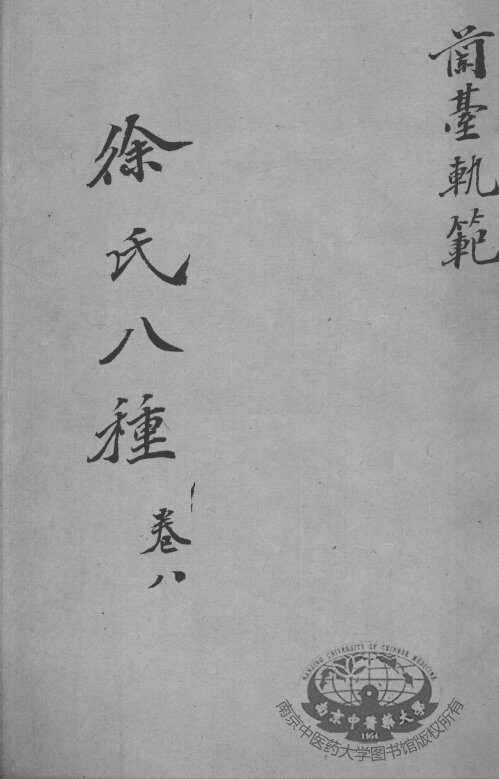 蘭臺軌範
徐氏八種
卷八
NANJING UNIVERSITY OF CHINESE MEDICINE
南京中醫藥大學
1954
南京中医药大学图书馆版权所有